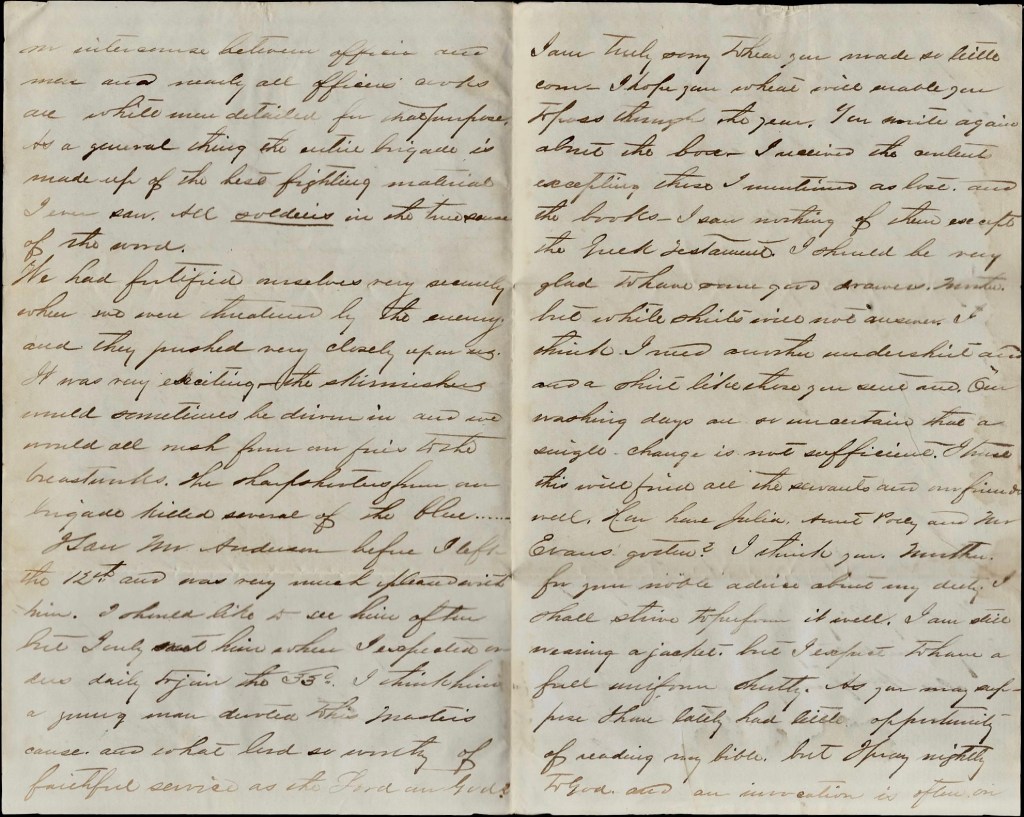 in intercourse between officer and
man and nearly all officers cooks
are white men detailed for that purpose.
As a general thing the entire brigade is
made up of the best fighting material
I ever saw. All soldiers in the true sense
of the word.
We had fortified ourselves very securely
when we were threatened by the enemy
and they pushed very closely upon us.
It was very exciting – the skirmishers
would sometimes be driven in and we
would all rush from our fires to the
breastworks. The sharpshooters from our
brigade killed several of the blue......
I saw Mr Anderson before I left
the 12th and was very much pleased with
him. I should like to see him often
but I only met him when I expected or
ders daily to join the 53d. I think him
a young man devoted to his Masters
cause. and what lord so worthy of
faithful service as the Lord our God?
I am truly sorry to hear you made so little
corn – I hope your wheat will enable you
to pass through the year. You write again
about the box – I received the content
excepting those I mentioned as lost. and
the books – I saw nothing of them except
the Greek Testament. I should be very
glad to have some good drawers. Mother.
but white shirts will not answer. I
think I need another undershirt and
and a shirt like those you sent me. Our
washing days are so uncertain that a
single change is not sufficient. I trust
this will find all the servants and our friends
well. How have Julia. Aunt Polly and Mr
Evans gotten? I thank you. Mother.
for your noble advice about my duty. I
shall strive to perform it well. I am still
wearing a jacket. but I expect to have a
full uniform shortly. As you may sup-
pose I have lately had little opportunity
of reading my bible. but I pray nightly
to God. and an invocation is often on